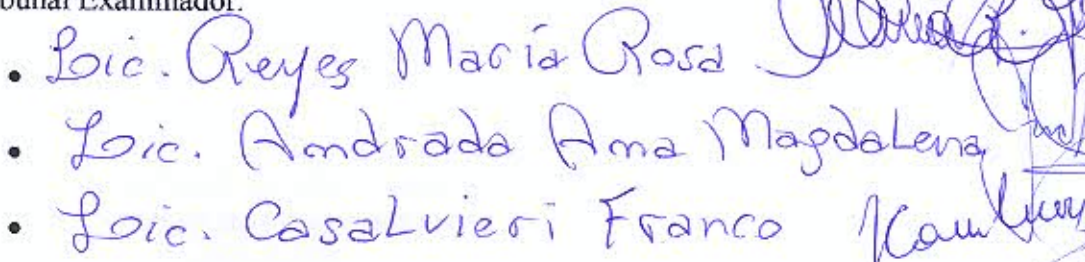 Tribunal Examinador:
• Lic. Reyes María Rosa
• Lic. Andrada Ana Magdalena
• Lic. Casalvieri Franco